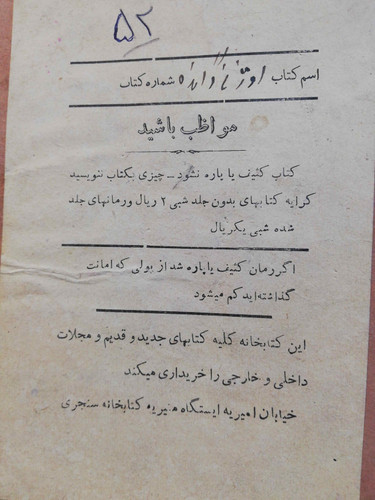 ۵۲
اسم کتاب شماره کتاب
مواظب باشید
کتاب کثیف یا پاره نشود ـ چیزی بکتاب ننویسید
کرایه کتابهای بدون جلد شبی ۲ ریال ورمانهای جلد
شده شبی یکریال
اگر رمان کثیف یا پاره شد از پولی که امانت
گذاشته‌اید کم میشود
این کتابخانه کلیه کتابهای جدید و قدیم و مجلات
داخلی و خارجی را خریداری میکند
خیابان امیریه ایستگاه منیریه کتابخانه سنجری